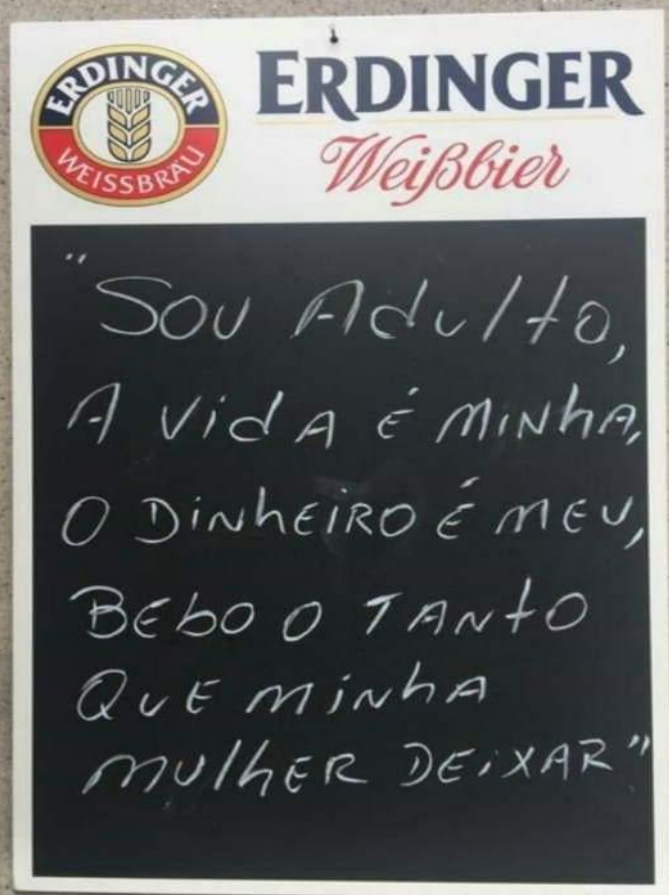 ERDINGER
WEISSBRÄU
ERDINGER
Weißbier
"SOU AdulTO,
A Vida É MINhA,
O DINhEIRO É MEU,
BEbO O TANTO
QUE MINhA
MUlhER DEiXAR"